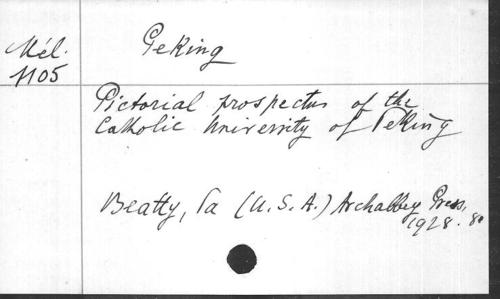 Mél.
1105
Peking
Pictorial prospectus of the
Catholic University of Peking
Beatty, Pa (U.S.A.) Archabbey Press,
1928. 8o